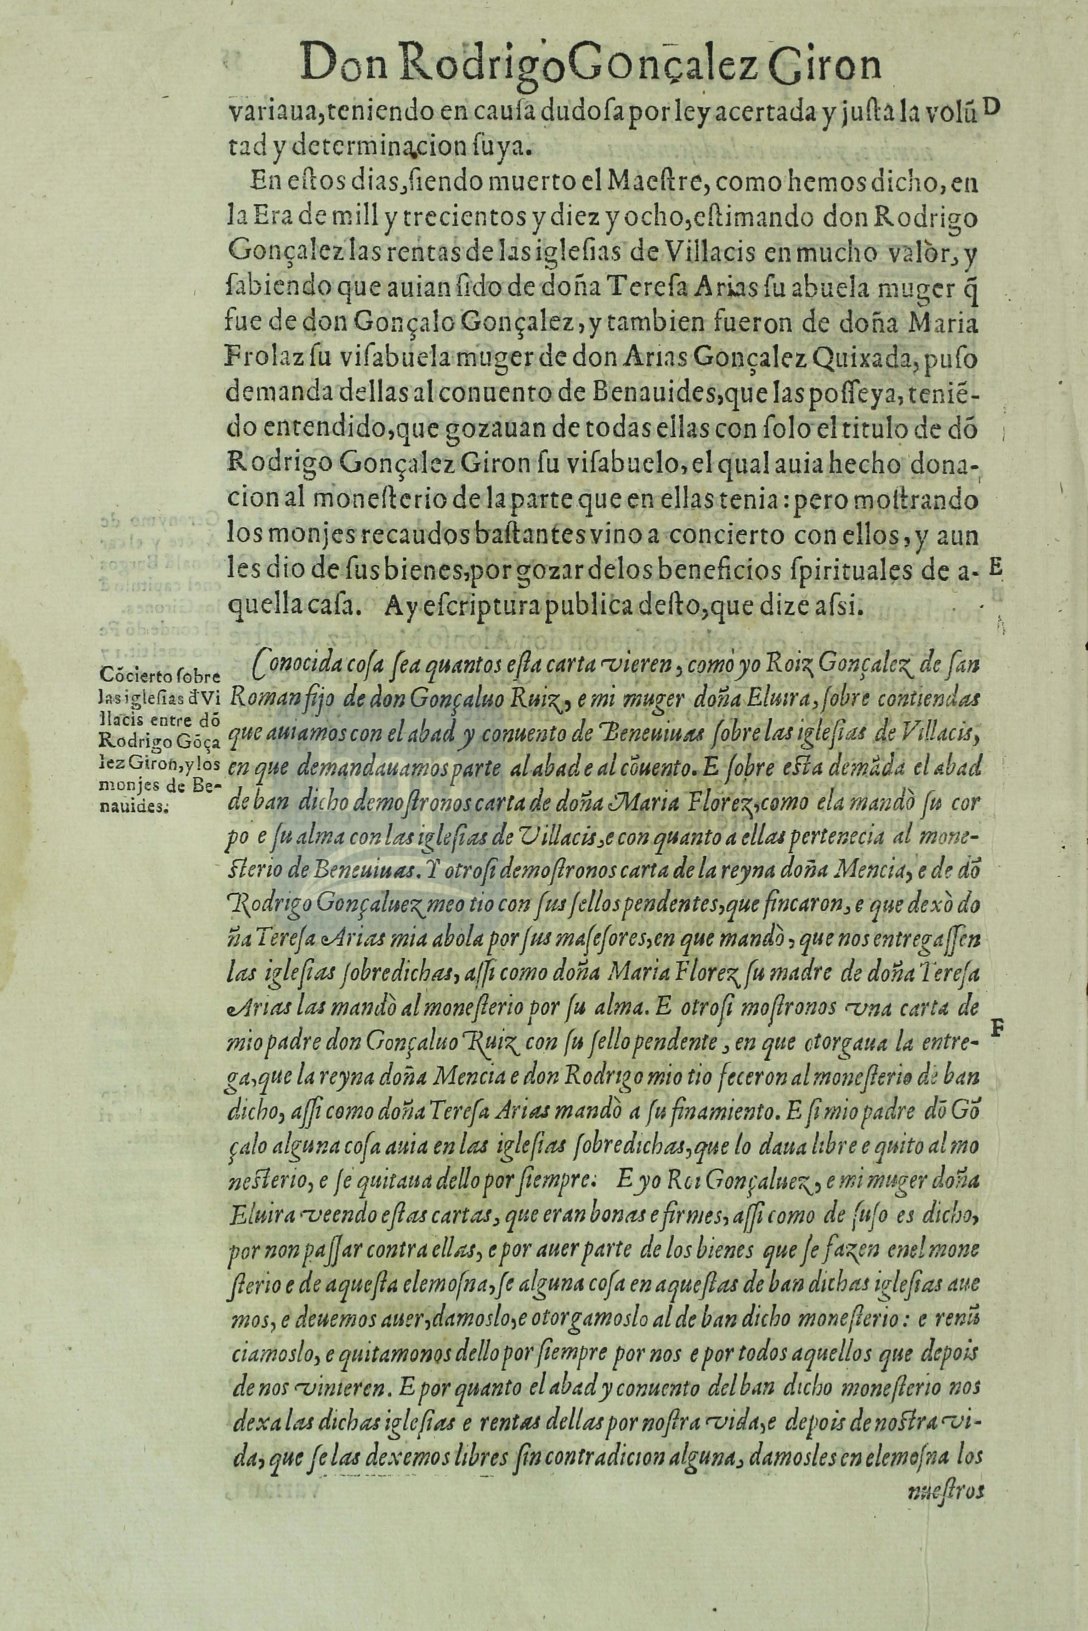 Don Rodrigo Gonçalez Giron
variaua, teniendo en causa dudoſa por ley acertada y juſta la volũ D
tad y determinacion ſuya.
En eſtos dias, ſiendo muerto el Maeſtre, como hemos dicho, en
la Era de mill y trecientos y diez y ocho, eſtimando don Rodrigo
Gonçalez las rentas de las igleſias de Villacis en mucho valòr, y
ſabiendo que auian ſido de doña Tereſa Arias ſu abuela muger q̃
fue de don Gonçalo Gonçalez, y tambien fueron de doña Maria
Frolaz ſu viſabuela muger de don Arias Gonçalez Quixada, puſo
demanda dellas al conuento de Benauides, que las poſſeya, teniẽ-
do entendido, que gozauan de todas ellas con ſolo el titulo de dõ
Rodrigo Gonçalez Giron ſu viſabuelo, el qual auia hecho dona-
cion al moneſterio de la parte que en ellas tenia: pero moſtrando
los monjes recaudos baſtantes vino a concierto con ellos, y aun
les dio de ſus bienes, por gozar delos beneficios ſpirituales de a- E
quella caſa. Ay eſcriptura publica deſto, que dize aſsi.
Cõcierto ſobre
las igleſias đ Vi
llacis entre dõ
Rodrigo Gõça
lez Giron, y los
monjes de Be-
nauides.
Conocida coſa ſea quantos eſta carta vieren, comò yo Roiz Gonçalez de ſan
Roman fijo de don Gonçaluo Ruiz, e mi muger doña Eluira, ſobre contiendas
que auiamos con el abad y conuento de Beneuiuas ſobre las igleſias de Villacis,
en que demandauamos parte al abad e al cõuento. E ſobre eſta demãda el abad
de ban dicho demoſtronos carta de doña Maria Florez, como ela mandò ſu cor
po e ſu alma con las igleſias de Villacis, e con quanto a ellas pertenecia al mone-
ſterio de Beneuiuas. Y otroſi demoſtronos carta de la reyna doña Mencia, e de dõ
Rodrigo Gonçaluez meo tio con ſus ſellos pendentes, que fincaron, e que dexò do
ña Tereſa Arias mia abola por ſus maſeſores, en que mandò, que nos entregaſſen
las igleſias ſobredichas, aſſi como doña Maria Florez ſu madre de doña Tereſa
Arias las mandò al moneſterio por ſu alma. E otroſi moſtronos vna carta de
mio padre don Gonçaluo Ruiz con ſu ſello pendente, en que otorgaua la entre- F
ga, que la reyna doña Mencia e don Rodrigo mio tio feceron al moneſterio de ban
dicho, aſſi como doña Tereſa Arias mandò a ſu finamiento. E ſi mio padre dõ Gõ
çalo alguna coſa auia en las igleſias ſobredichas, que lo daua libre e quito al mo
neſterio, e ſe quitaua dello por ſiempre. E yo Roi Gonçaluez, e mi muger doña
Eluira veendo eſtas cartas, que eran bonas e firmes, aſſi como de ſuſo es dicho,
por non paſſar contra ellas, e por auer parte de los bienes que ſe fazen enel mone
ſterio e de aqueſta elemoſna, ſe alguna coſa en aqueſtas de ban dichas igleſias aue
mos, e deuemos auer, damoslo, e otorgamoslo al de ban dicho moneſterio: e renũ
ciamoslo, e quitamonos dello por ſiempre por nos e por todos aquellos que depois
de nos vinieren. E por quanto el abad y conuento del ban dicho moneſterio nos
dexa las dichas igleſias e rentas dellas por noſtra vida, e depois de noſtra vi-
da, que ſe las dexemos libres ſin contradicion alguna, damosles en elemoſna los
nueſtros